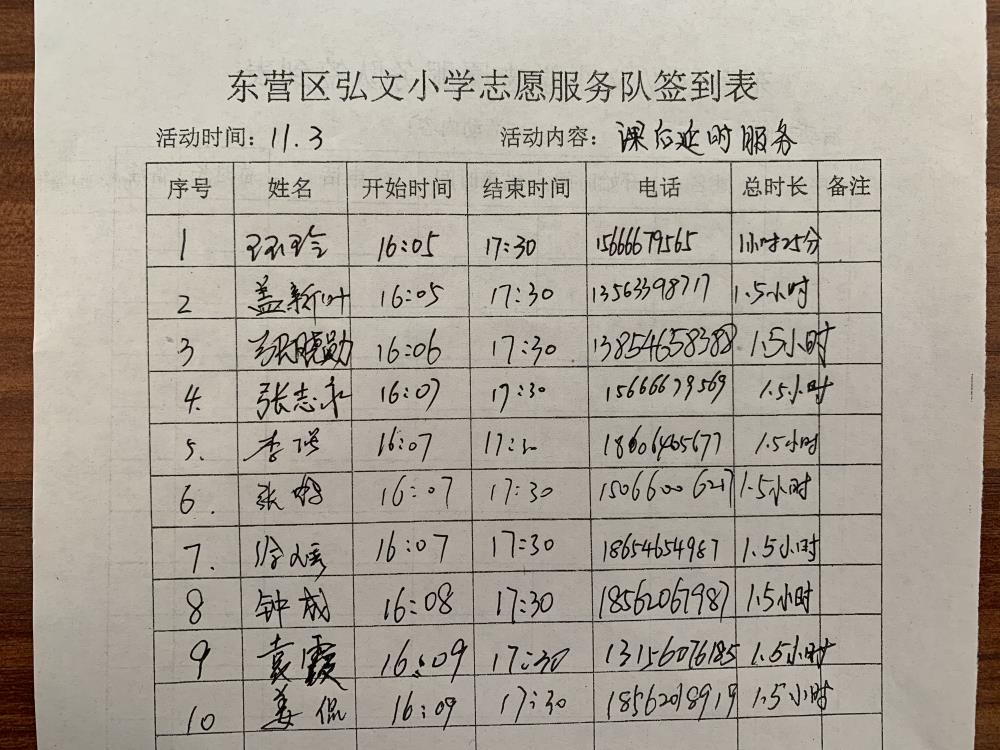 东营区弘文小学志愿服务队签到表
活动时间：11.3 活动内容：课后延时服务
序号 姓名 开始时间 结束时间 电话 总时长 备注
1 王玉玲 16:05 17:30 15666679565 1小时25分
2 盖新叶 16:05 17:30 13563398717 1.5小时
3 16:06 17:30 13854658388 1.5小时
4. 张志永 16:07 17:30 15666679569 1.5小时
5. 李瑛 16:07 17: 18606465677 1.5小时
6. 张 16:07 17:30 15066006217 1.5小时
7. 徐 16:07 17:30 18654654987 1.5小时
8 钟成 16:08 17:30 18562067987 1.5小时
9 袁霞 16:09 17:30 13156076185 1.5小时
10 姜侃 16:09 17:30 18562018919 1.5小时